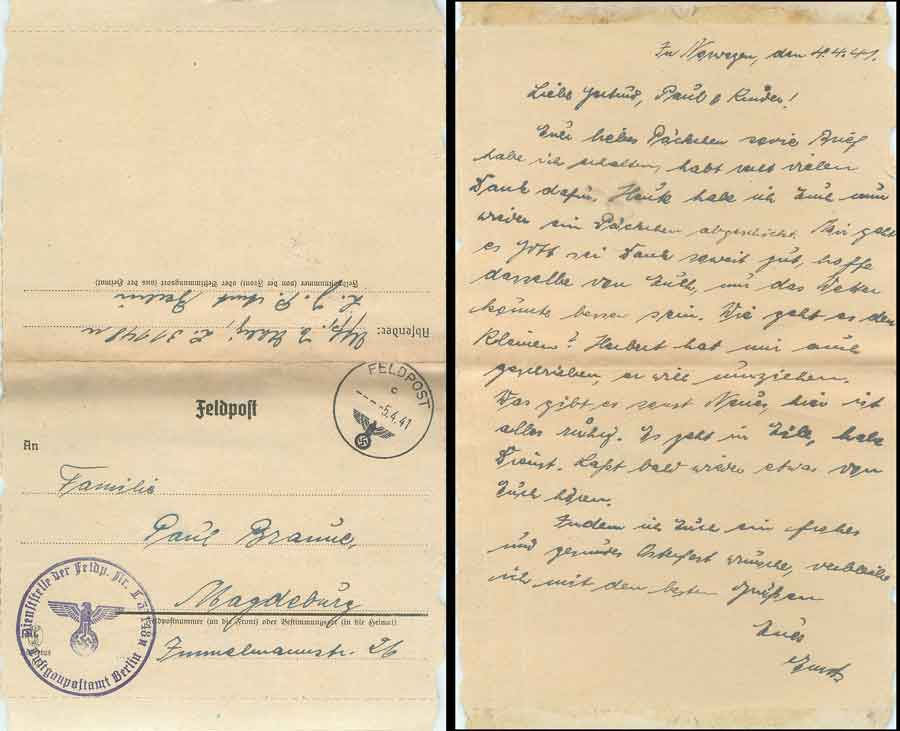 Feldpostnummer (von der Front) oder Bestimmungsort (aus der Heimat)
L. G. P. Amt Berlin
Absender: Uffz. L 31148 n
FELDPOST
c
5.4.41
Feldpost
An
Familie
Paul Braune,
Magdeburg
Feldpostnummer (an die Front) oder Bestimmungsort (in die Heimat)
Immelmannstr. 26
Dienststelle der Feldp. Nr. L 31148 n
Luftgaupostamt Berlin
In Norwegen, den 4.4.41.
Liebe Gertrud, Paul & Kinder!
Euer liebes Päckchen sowie Brief
habe ich erhalten, habt recht vielen
Dank dafür. Heute habe ich Euch nun
wieder ein Päckchen abgeschickt. Mir geht
es Gott sei Dank soweit gut, hoffe
dasselbe von Euch, nur das Wetter
könnte besser sein. Wie geht es den
Kleinen? Herbert hat mir auch
geschrieben, er will umziehen.
Was gibt es sonst Neues, hier ist
alles ruhig. Es geht in Eile, habe
Dienst. Laßt bald wieder etwas von
Euch hören.
Indem ich Euch ein frohes
und gesundes Osterfest wünsche, verbleibe
ich mit den besten Grüßen
Euer